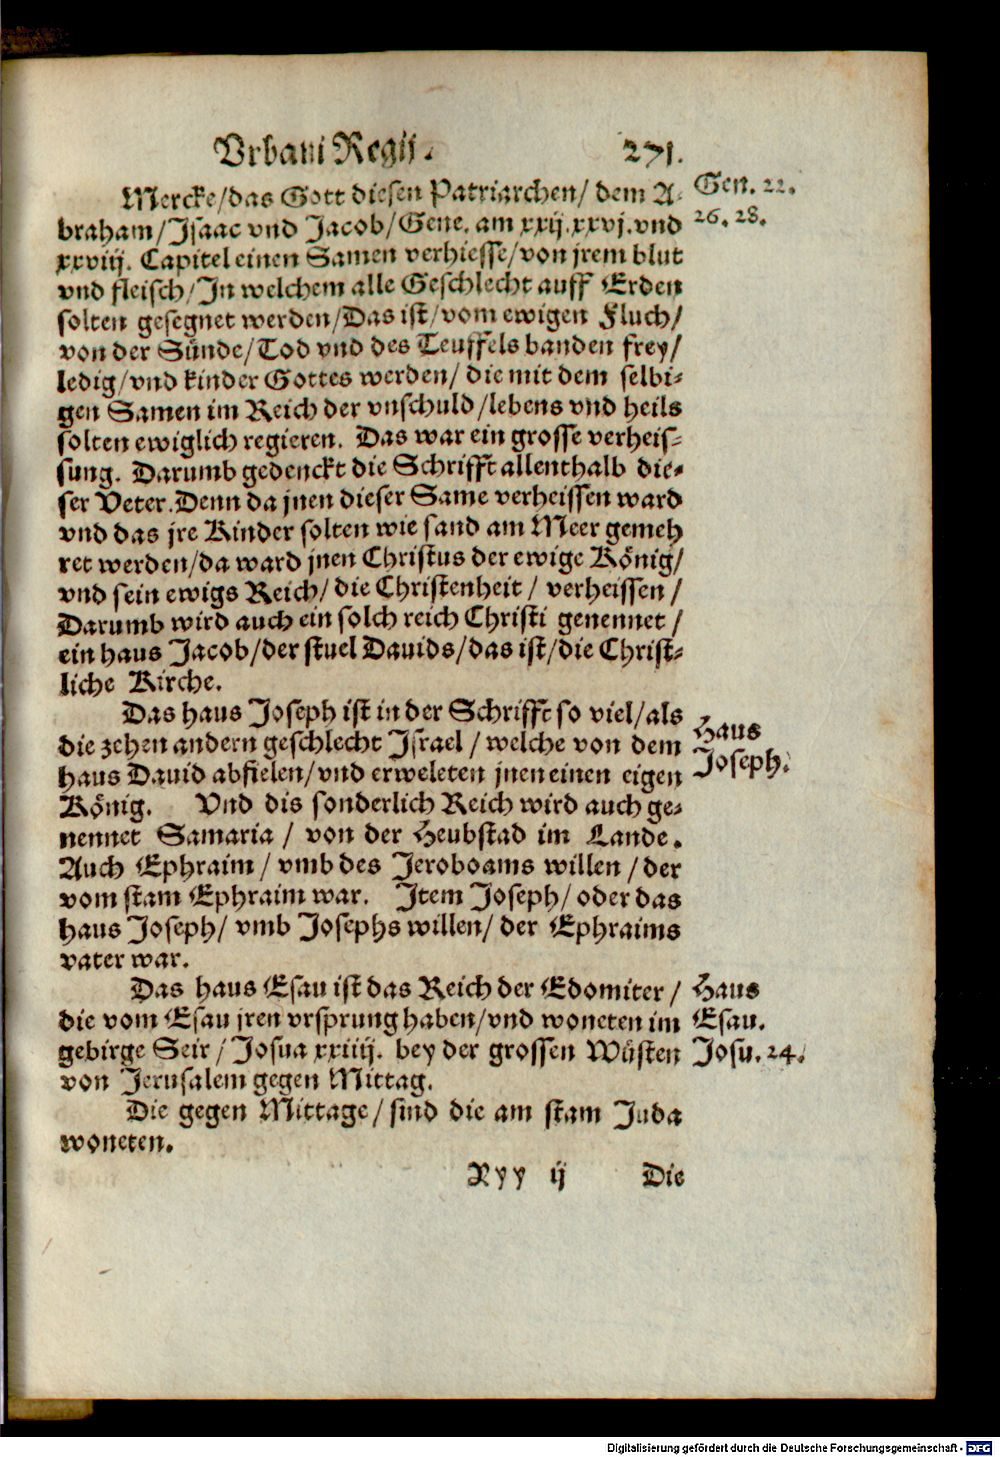 Vrbani Regij. 271.
Mercke/das Gott diesen Patriarchen/ dem A- Gen. 22.
braham/Isaac vnd Jacob/Gene. am xxij.xxvj.vnd 26. 28.
xxviij. Capitel einen Samen verhiesse/von jrem blut
vnd fleisch/In welchem alle Geschlecht auff Erden
solten gesegnet werden/Das ist/vom ewigen Fluch/
von der Sünde/Tod vnd des Teuffels banden frey/
ledig/vnd kinder Gottes werden/ die mit dem selbi-
gen Samen im Reich der vnschuld/lebens vnd heils
solten ewiglich regieren. Das war ein grosse verheis-
sung. Darumb gedenckt die Schrifft allenthalb die-
ser Veter. Denn da jnen dieser Same verheissen ward
vnd das jre Kinder solten wie sand am Meer gemeh
ret werden/da ward jnen Christus der ewige König/
vnd sein ewigs Reich/die Christenheit/ verheissen/
Darumb wird auch ein solch reich Christi genennet/
ein haus Jacob/der stuel Dauids/das ist/die Christ-
liche Kirche.
Das haus Joseph ist in der Schrifft so viel/als Haus
die zehen andern geschlecht Israel/welche von dem Joseph.
haus Dauid abfielen/vnd erweleten jnen einen eigen
König. Vnd dis sonderlich Reich wird auch ge-
nennet Samaria/ von der Heubstad im Lande.
Auch Ephraim/ vmb des Jeroboams willen/der
vom stam Ephraim war. Item Joseph/oder das
haus Joseph/ vmb Josephs willen/ der Ephraims
vater war.
Das haus Esau ist das Reich der Edomiter/ Haus
die vom Esau jren vrsprung haben/vnd woneten im Esau.
gebirge Seir/ Josua xxiiij. bey der grossen Wüsten Josu. 24.
von Jerusalem gegen Mittag.
Die gegen Mittage/sind die am stam Juda
woneten.
Xyy ij Die
Digitalisierung gefördert durch die Deutsche Forschungsgemeinschaft - DFG